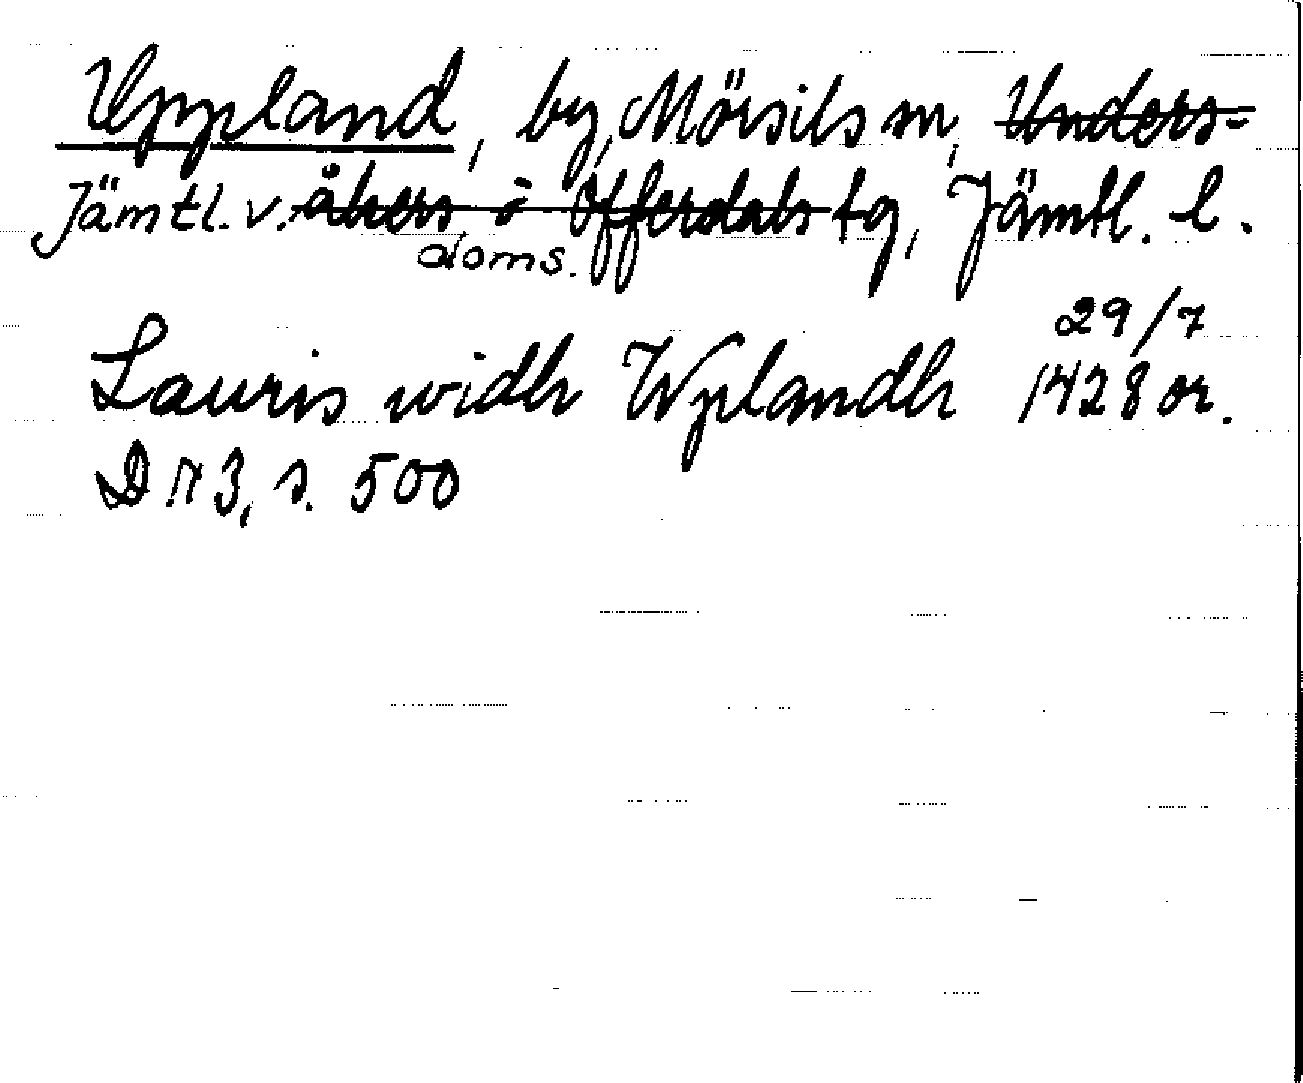 Uppland, by, Mörsils sn, Unders-
Jämtl. v. åkers o Offerdals tg, Jämtl. l.
doms.
29/7
Lauris widh Wplandh 1428 or.
DN 3, s. 500